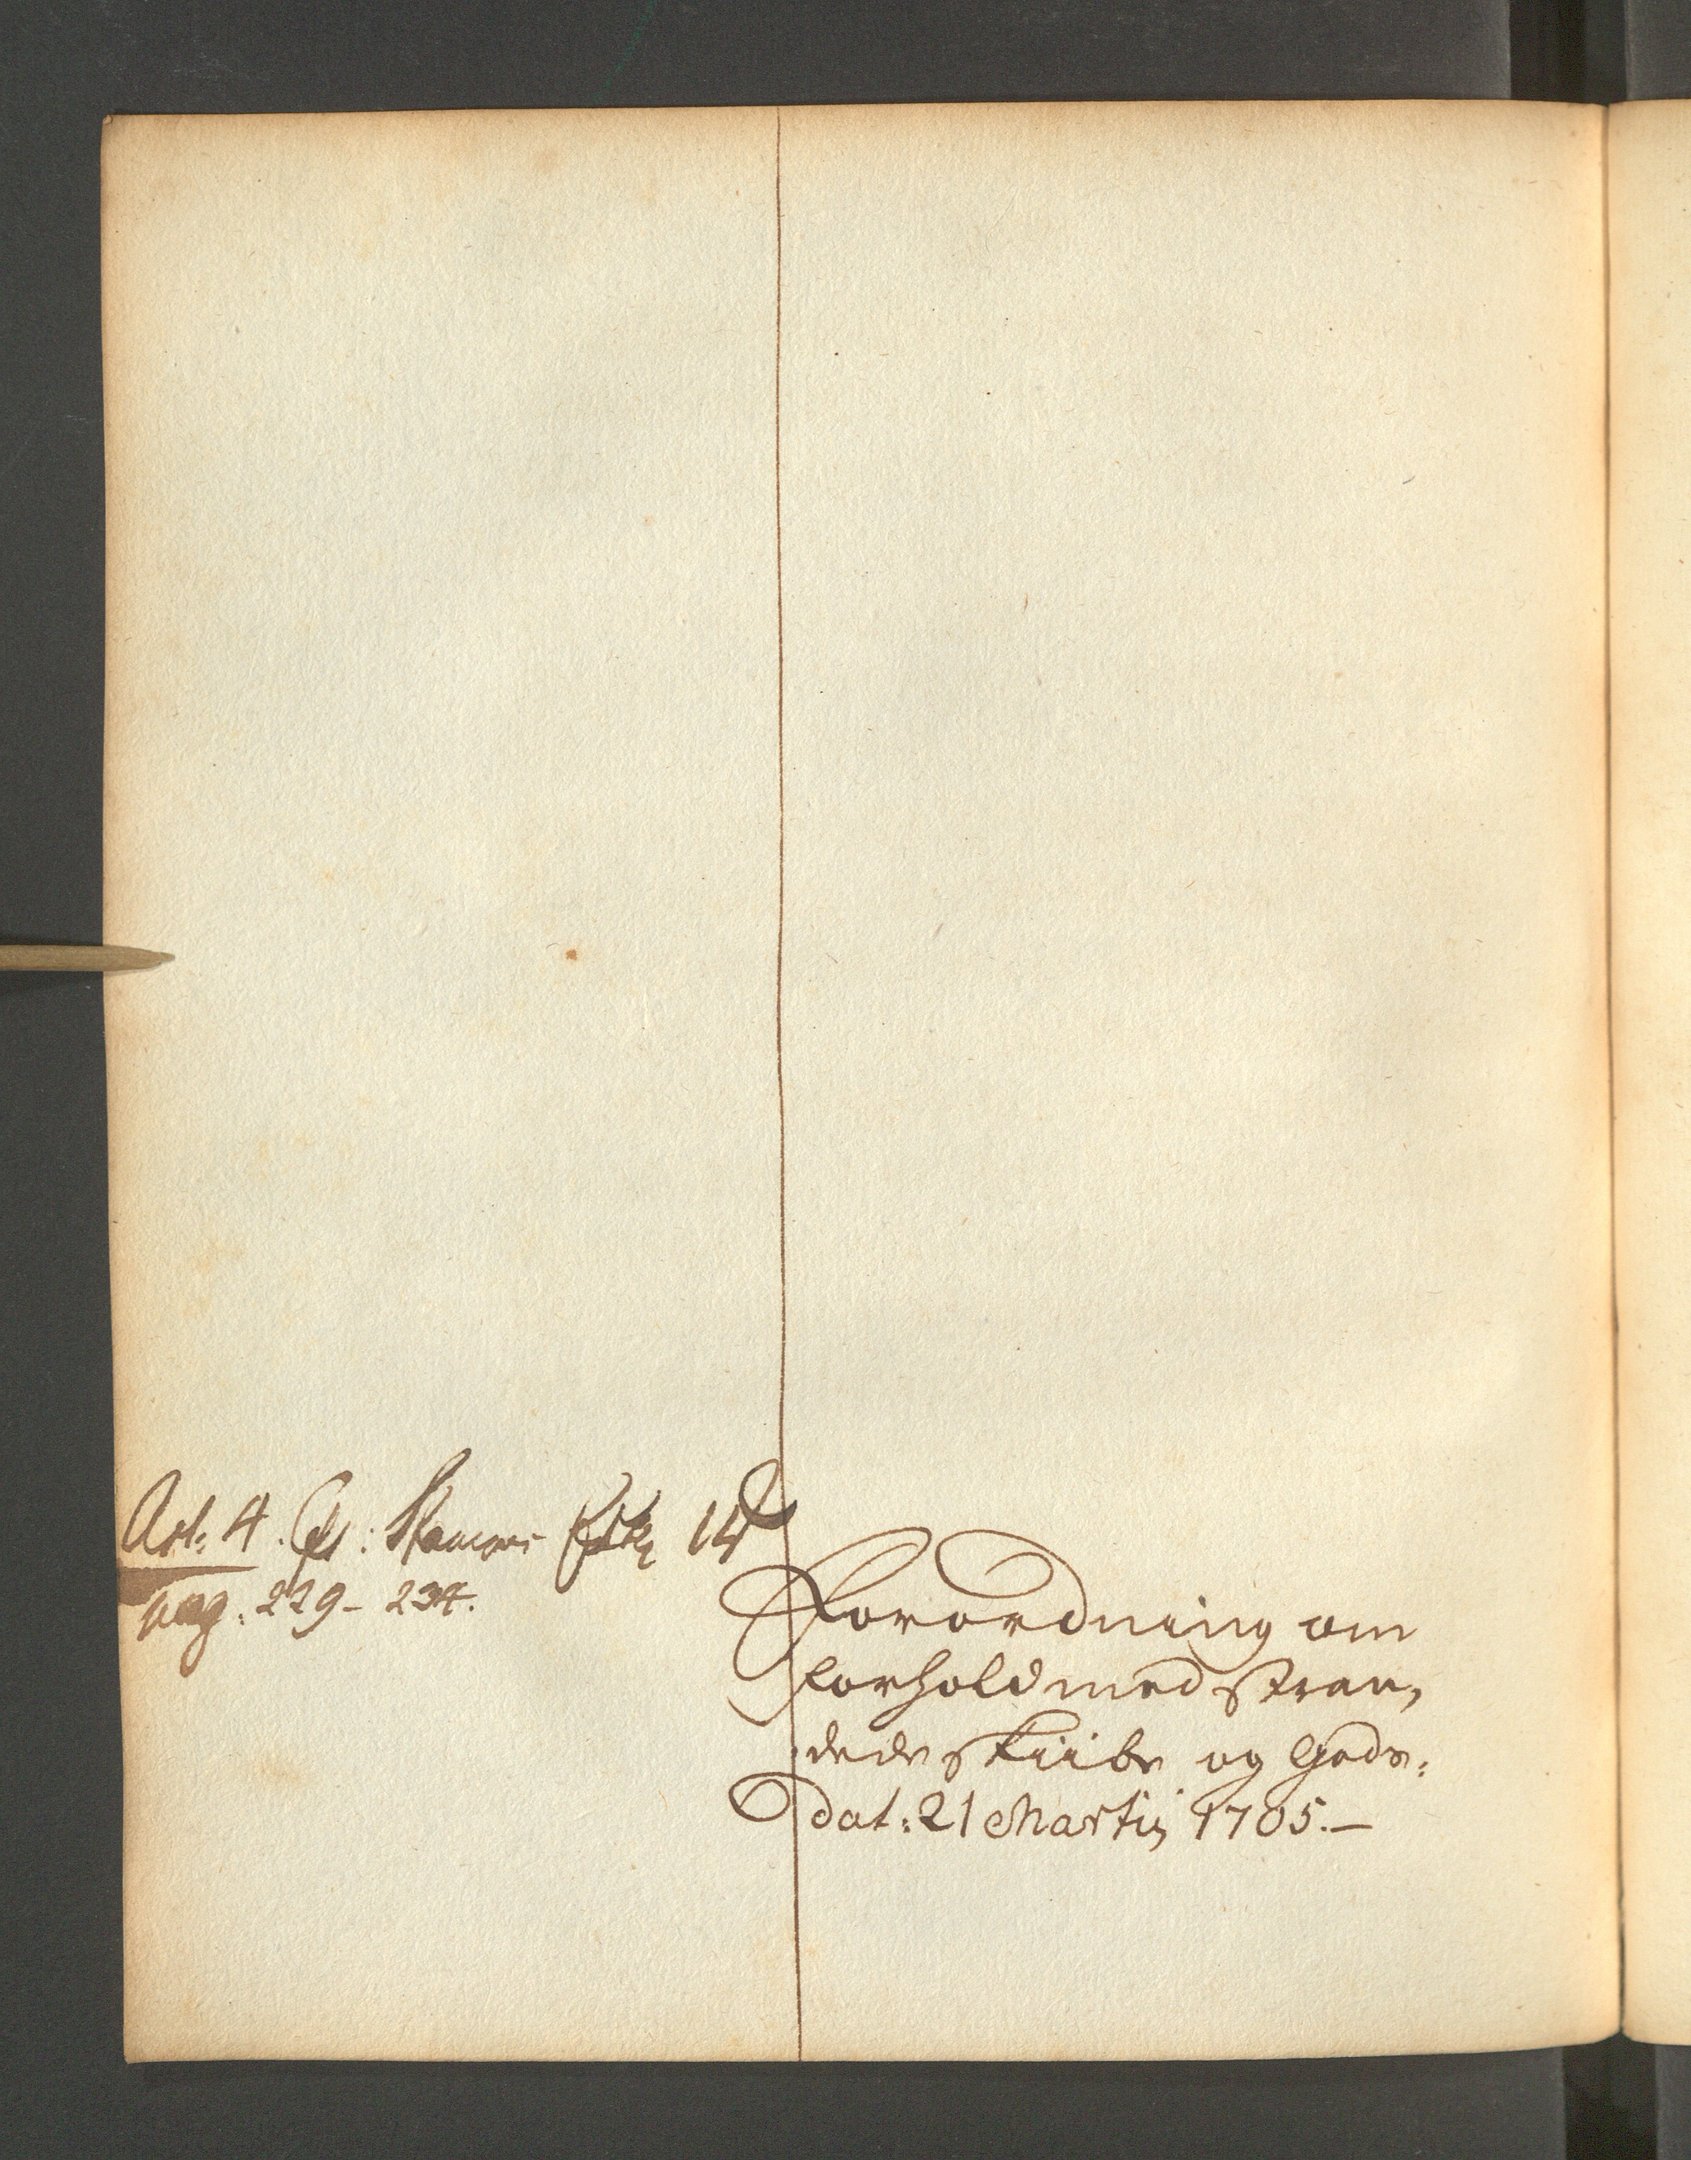 Art: 4. Cfr:
pag: 229-234.
Forordning om
forhold med stran,
dede skiibe og Gods:
dat: 21 Martij 1705.—